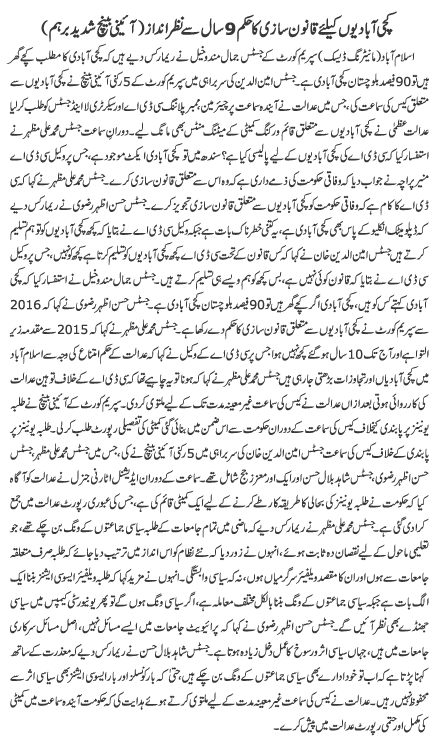 کچی آبادیوں کیلئے قانون سازی کا حکم 9 سال سے نظر انداز (آئینی بینچ شدید برہم)
اسلام آباد (مانیٹرنگ ڈیسک) سپریم کورٹ کے جسٹس جمال مندوخیل نے ریمارکس دیے ہیں کہ کچی آبادی کا مطلب کچے گھر
ہیں تو 90 فیصد بلوچستان کچی آبادی ہے۔ جسٹس امین الدین کی سربراہی میں سپریم کورٹ کے 5 رکنی آئینی بینچ نے کچی آبادیوں سے
متعلق کیس کی سماعت کی، جس میں عدالت نے آیندہ سماعت پر چیئرمین، ممبر پلاننگ سی ڈی اے اور سیکرٹری لا اینڈ جسٹس کو طلب کر لیا
عدالت عظمیٰ نے کچی آبادیوں سے متعلق قائم ورکنگ کمیٹی کے میٹنگ منٹس بھی مانگ لیے۔ دوران سماعت جسٹس محمد علی مظہر نے
استفسار کیا کہ سی ڈی اے کی کچی آبادیوں کے لیے پالیسی کیا ہے؟ سندھ میں تو کچی آبادی ایکٹ موجود ہے، جس پر وکیل سی ڈی اے
منیر پراچہ نے جواب دیا کہ وفاقی حکومت کی ذمے داری ہے کہ وہ اس سے متعلق قانون سازی کرے۔ جسٹس محمد علی مظہر نے کہا کہ سی
ڈی اے کا کام ہے کہ وفاقی حکومت کو کچی آبادیوں سے متعلق قانون سازی تجویز کرے۔ جسٹس حسن اظہر رضوی نے ریمارکس دیے
کہ ڈپلومیٹک انکلیو کے پاس بھی کچی آبادی ہے، یہ کتنی خطرناک بات ہے جبکہ وکیل سی ڈی اے نے بتایا کہ کچھ کچی آبادیوں کو تو ہم تسلیم
کرتے ہیں۔ جسٹس امین الدین خان نے کہا کہ کس قانون کے تحت سی ڈی اے کچھ کچی آبادیوں کو تسلیم کرتا ہے کچھ کو نہیں، جس پر وکیل
سی ڈی اے نے بتایا کہ قانون کوئی نہیں ہے، بس کچھ کو ہم ویسے ہی تسلیم کرتے ہیں۔ جسٹس جمال مندوخیل نے استفسار کیا کہ کچی
آبادی کہتے کس کو ہیں، کچی آبادی اگر کچے گھر ہیں تو 90 فیصد بلوچستان کچی آبادی ہے۔ جسٹس حسن اظہر رضوی نے کہا کہ 2016
سے سپریم کورٹ نے کچی آبادیوں سے متعلق قانون سازی کا حکم دے رکھا ہے۔ جسٹس محمد علی مظہر نے کہا کہ 2015 سے مقدمہ زیر
التوا ہے اور آج تک 10 سال ہو گئے کچھ نہیں ہوا جس پر سی ڈی اے کے وکیل نے کہا کہ عدالت کے حکم امتناع کی وجہ سے اسلام آباد
میں کچی آبادیاں اور تجاوزات بڑھتی جا رہی ہیں جسٹس محمد علی مظہر نے کہا کہ ہونا تو یہ چاہیے تھا کہ سی ڈی اے کے خلاف توہین عدالت
کی کارروائی ہوتی بعد ازاں عدالت نے کیس کی سماعت غیر معینہ مدت تک کے لیے ملتوی کر دی۔ سپریم کورٹ کے آئینی بینچ نے طلبہ
یونینز پر پابندی کیخلاف کیس کی سماعت کے دوران حکومت سے اس ضمن میں بنائی گئی کمیٹی کی تفصیلی رپورٹ طلب کر لی۔ طلبہ یونینز پر
پابندی کیخلاف کیس کی سماعت جسٹس امین الدین خان کی سربراہی میں 5 رکنی آئینی بینچ نے کی، جس میں جسٹس محمد علی مظہر، جسٹس
حسن اظہر رضوی، جسٹس شاہد بلال حسن اور ایک اور معزز جج شامل تھے۔ سماعت کے دوران ایڈیشنل اٹارنی جنرل نے عدالت کو آگاہ
کیا کہ حکومت نے طلبہ یونینز کی بحالی کا طریقہ کار طے کرنے کے لیے ایک کمیٹی قائم کی ہے، جس کی عبوری رپورٹ عدالت میں جمع
کرا دی گئی ہے۔ جسٹس محمد علی مظہر نے ریمارکس دیے کہ ماضی میں تمام جامعات کے طلبہ سیاسی جماعتوں کے ونگ بن چکے تھے، جو
تعلیمی ماحول کے لیے نقصان دہ ثابت ہوئے، انہوں نے زور دیا کہ نئے نظام کو اس انداز میں ترتیب دیا جائے کہ طلبہ صرف متعلقہ
جامعات سے ہوں اور ان کا مقصد ویلفیئر سرگرمیاں ہوں، نہ کہ سیاسی وابستگی۔ انہوں نے مزید کہا کہ طلبہ ویلفیئر ایسوسی ایشنز بننا ایک
الگ بات ہے جبکہ سیاسی جماعتوں کے ونگ بننا بالکل مختلف معاملہ ہے، اگر سیاسی ونگ ہوں گے تو پھر یونیورسٹی کیمپس میں سیاسی
جھنڈے بھی نظر آئیں گے۔ جسٹس حسن اظہر رضوی نے کہا کہ پرائیویٹ جامعات میں ایسے مسائل نہیں، اصل مسائل سرکاری
جامعات میں ہیں، جہاں سیاسی اثر و رسوخ کا مکمل خل زیادہ ہوتا ہے۔ جسٹس شاہد بلال حسن نے ریمارکس دیے کہ معذرت کے ساتھ
کہنا پڑتا ہے کہ اب تو خود ادارے بھی سیاسی جماعتوں کے ونگ بن چکے ہیں حتیٰ کہ بار کونسلز اور بار ایسوسی ایشنز بھی سیاسی اثر سے
محفوظ نہیں رہیں۔ عدالت نے کیس کی سماعت غیر معینہ مدت کے لیے ملتوی کرتے ہوئے ہدایت کی کہ حکومت آیندہ سماعت میں کمیٹی
کی مکمل اور حتمی رپورٹ عدالت میں پیش کرے۔